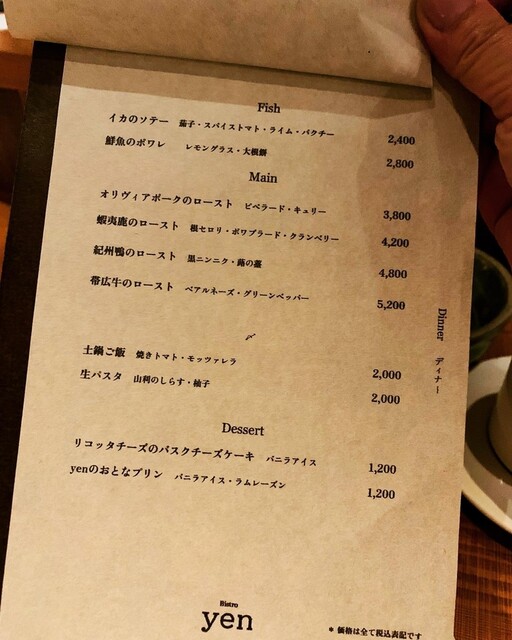 Fish
イカのソテー 茄子・スパイストマト・ライム・パクチー 2,400
鮮魚のポワレ レモングラス・大根餅 2,800
Main
オリヴィアポークのロースト ピペラード・キュリー 3,800
蝦夷鹿のロースト 根セロリ・ポワブラード・クランベリー 4,200
紀州鴨のロースト 黒ニンニク・蕗の薹 4,800
帯広牛のロースト ベアルネーズ・グリーンペッパー 5,200
Dinner ディナー
〆
土鍋ご飯 焼きトマト・モッツァレラ 2,000
生パスタ 山利のしらす・柚子 2,000
Dessert
リコッタチーズのバスクチーズケーキ バニラアイス 1,200
yenのおとなプリン バニラアイス・ラムレーズン 1,200
Bistro
yen
* 価格は全て税込表記です